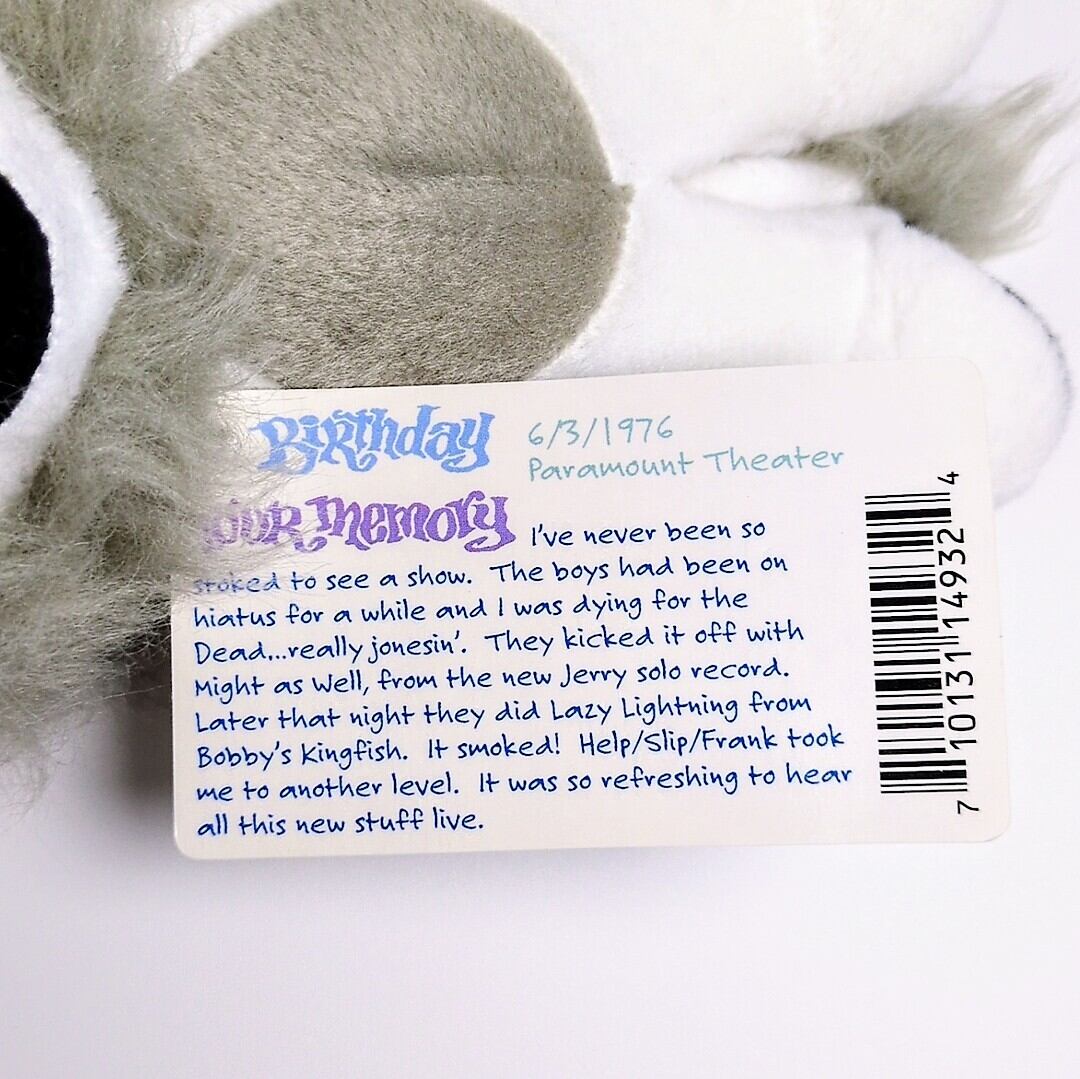 Birthday 6/3/1976
Paramount Theater
Tour Memory I've never been so
stoked to see a show. The boys had been on
hiatus for a while and I was dying for the
Dead...really jonesin'. They kicked it off with
Might as Well, from the new Jerry solo record.
Later that night they did Lazy Lightning from
Bobby's Kingfish. It smoked! Help/Slip/Frank took
me to another level. It was so refreshing to hear
all this new stuff live.
7 10131 14932 4